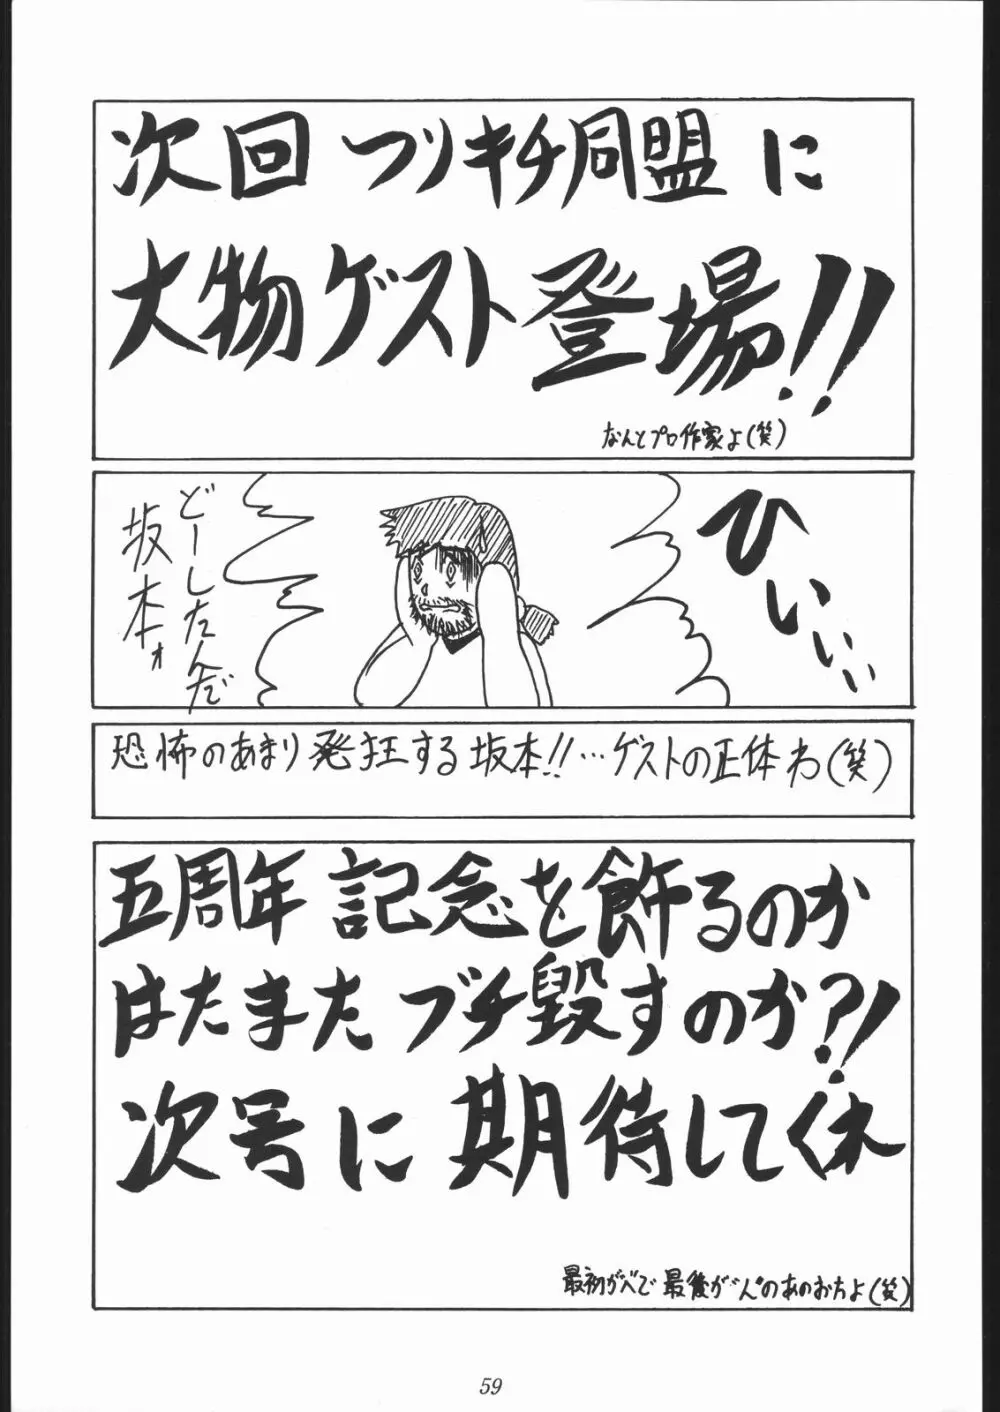 次回 フリキチ同盟 に
大物ゲスト登場!!
なんとプロ作家よ(笑)
ひいぃぃ
どーしたんだ
坂本ォ
恐怖のあまり発狂する坂本!!…ゲストの正体わ(笑)
五周年 記念を飾るのか
はたまた ブチ毀すのか?!
次号に 期待してくれ
最初が“べ”で 最後が“ん”のあのお方よ(笑)
59